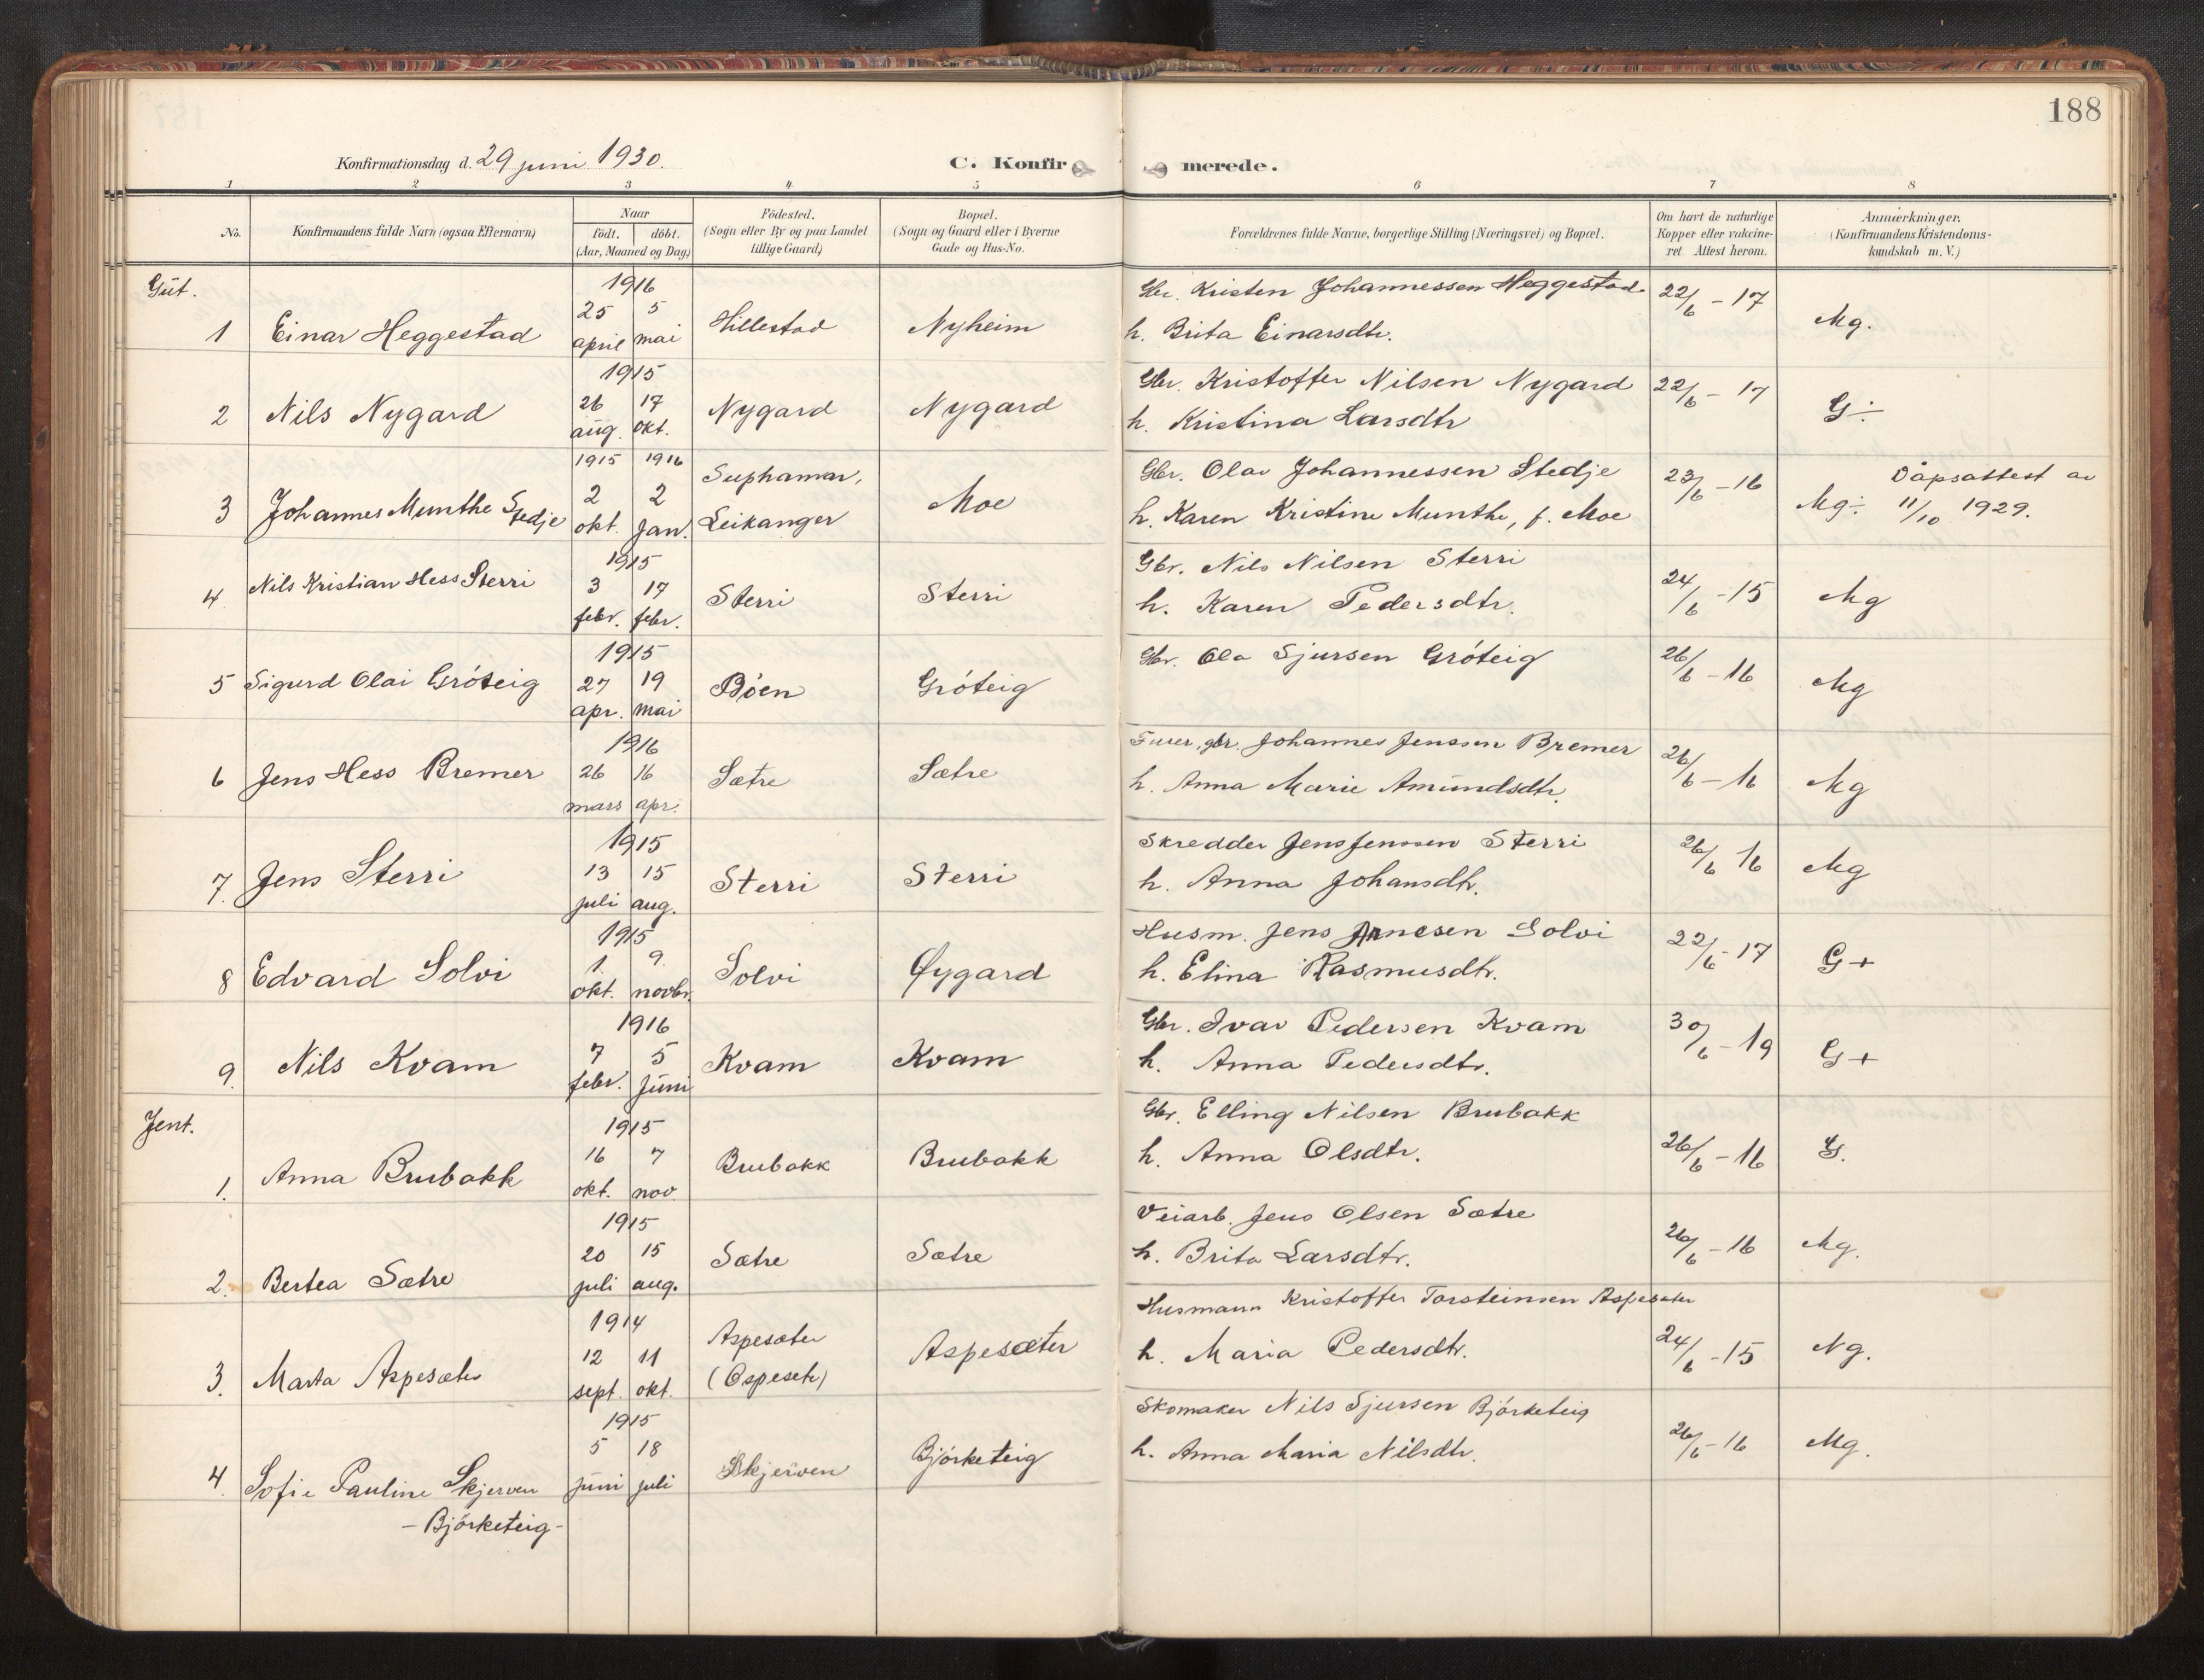 188
Konfirmationsdag d. 29 juni 1930.
C. Konfirmerede.
1 2 3 4 5 6 7 8
No.
Konfirmandens fulde Navn (ogsaa Efternavn)
Naar
födt. döbt.
(Aar, Maaned og Dag)
Födested.
(Sogn eller By og paa Landet
tillige Gaard)
Bopæl.
(Sogn og Gaard eller i Byerne
Gade og Hus-No.
Forældrenes fulde Navne, borgerlige Stilling (Næringsvei) og Bopæl.
Om havt de naturlige
Kopper eller vakcine-
ret Attest herom.
Anmærkninger.
(Konfirmandens Kristendoms-
kundskab m. V.)
Gut.
1 Einar Heggestad 1916 25 april 5 mai Hillestad Nyheim
Gbr. Kristen Johannessen Heggestad
h. Brita Einarsdtr.
22/6 - 17 Mg.
2 Nils Nygard 1915 26 aug. 17 okt. Nygard Nygard
Gbr. Kristoffer Nilsen Nygard
h. Kristina Larsdtr
22/6 - 17 G ÷
3 Johannes Munthe Stedje 1915 2 okt. 1916 2 jan. Suphamar, Leikanger Moe
Gbr. Olav Johannessen Stedje
h. Karen Kristine Munthe, f. Moe
23/6 - 16 Mg ÷ Dåpsattest av
11/10 1929.
4 Nils Kristian Hess Sterri 1915 3 febr. 17 febr. Sterri Sterri
Gbr. Nils Nilsen Sterri
h. Karen Pedersdtr.
24/6 - 15 Mg
5 Sigurd Olai Gróteig 1915 27 apr. 19 mai Bóen Gróteig
Gbr. Ola Sjursen Gróteig
26/6 - 16 Mg
6 Jens Hess Bremer 1916 26 mars 16 apr. Sætre Sætre
Furer, gbr. Johannes Jenssen Bremer
h. Anna Marie Amundsdtr.
26/6 - 16 Mg
7. Jens Sterri 1915 13 juli 15 aug. Sterri Sterri
Skredder Jens Jenssen Sterri
h. Anna Johansdtr.
26/6 16 Mg
8 Edvard Solvi 1915 1. okt. 9. novbr. Solvi Øygard
Husm. Jens Arnesen Solvi
h. Elina Rasmusdtr.
22/6 - 17 G +
9. Nils Kvam 1916 7 febr. 5 juni Kvam Kvam
Gbr. Ivar Pedersen Kvam
h. Anna Pedersdtr.
30/6 - 19 G +
Jent.
1. Anna Brubakk 1915 16 okt. 7 nov. Brubakk Brubakk
Gbr. Elling Nilsen Brubakk
h. Anna Olsdtr.
26/6 - 16 G.
2. Bertea Sætre 1915 20 juli 15 aug. Sætre Sætre
Veiarb. Jens Olsen Sætre
h. Brita Larsdtr.
26/6 - 16 Mg.
3. Marta Aspesæter 1914 12 sept. 11 okt. Aspesæter (Ospesetr) Aspesæter
Husmann Kristoffer Torsteinsen Aspesæter
h. Maria Pedersdtr.
24/6 - 15 Ng.
4. Sofie Pauline Skjerven 1915 5 juni 18 juli Skjerven Bjórketeig
- Bjórketeig -
Skomaker Nils Sjursen Bjórketeig
h. Anna Maria Nilsdtr.
26/6 - 16 Mg.